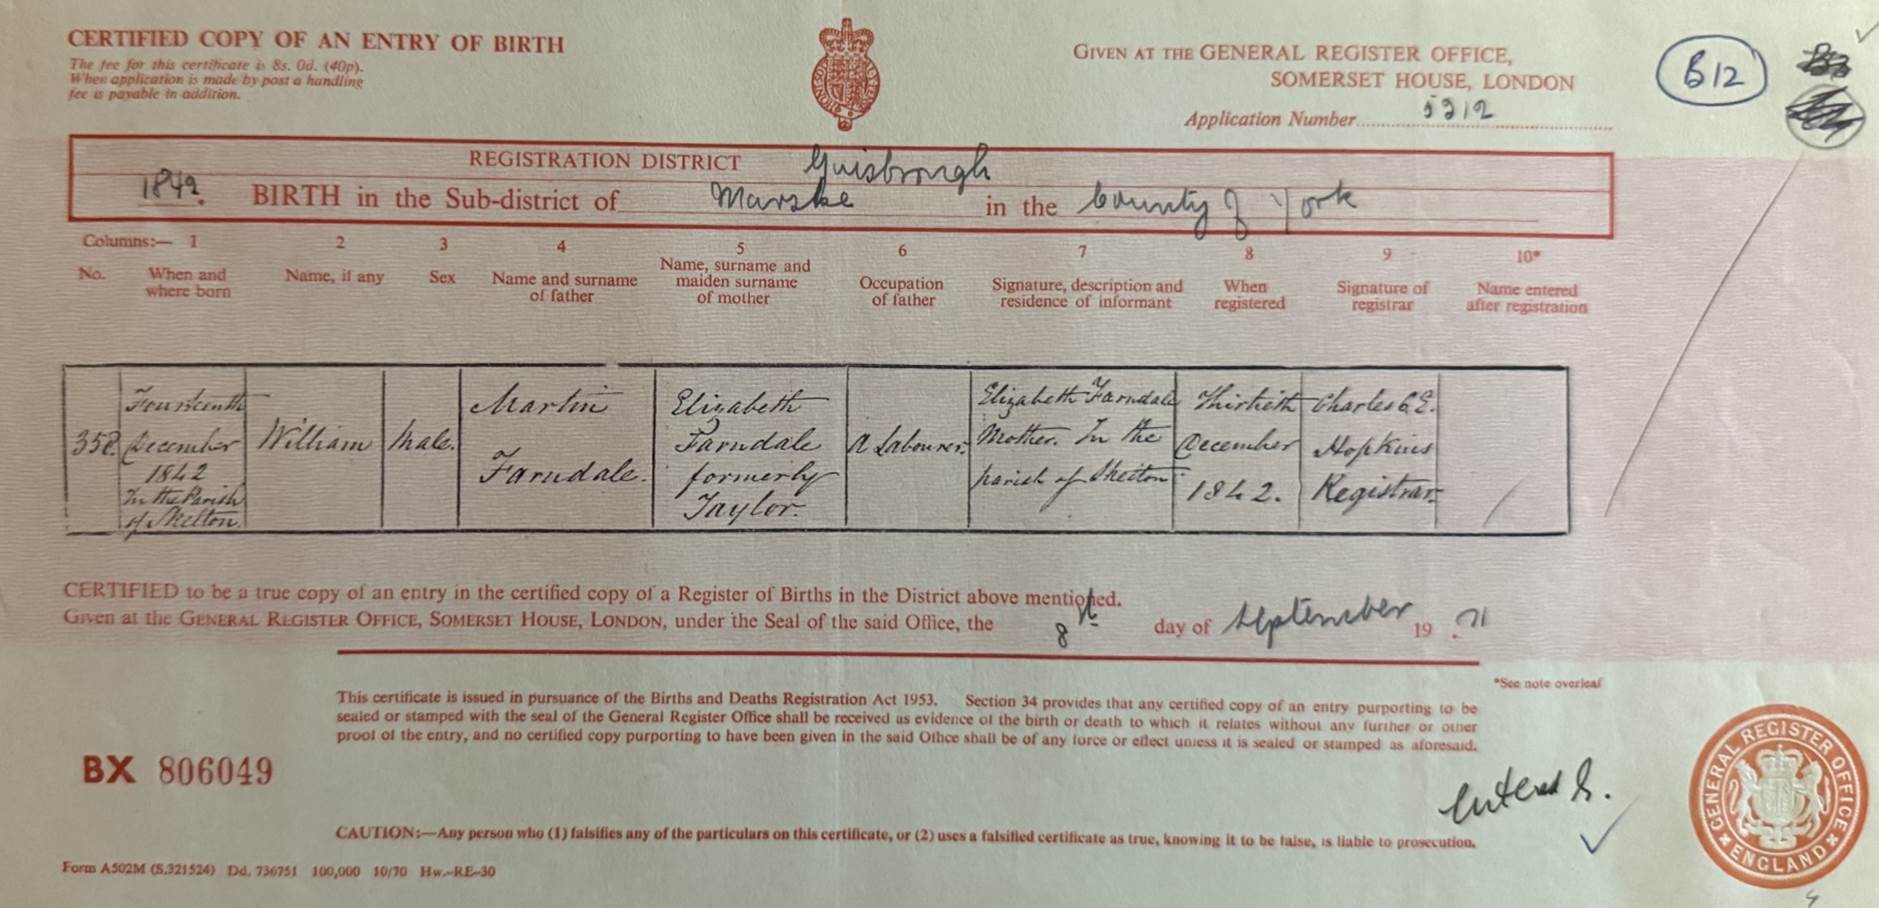 CERTIFIED COPY OF AN ENTRY OF BIRTH
The fee for this certificate is 8s. 0d. (40p).
When application is made by post a handling
fee is payable in addition.
GIVEN AT THE GENERAL REGISTER OFFICE,
SOMERSET HOUSE, LONDON
Application Number 5212
B12
REGISTRATION DISTRICT Guisbrough
1842. BIRTH in the Sub-district of Marske in the County of York
Columns:— 1 2 3 4 5 6 7 8 9 10*
No. When and where born
Name, if any
Sex
Name and surname
of father
Name, surname and
maiden surname
of mother
Occupation
of father
Signature, description and
residence of informant
When
registered
Signature of
registrar
Name entered
after registration
358.
Fourteenth
December
1842
In the Parish
of Skelton.
William
Male.
Martin
Farndale.
Elizabeth
Farndale
formerly
Taylor.
A Labourer.
Elizabeth Farndale
Mother. In the
parish of Skelton
Thirtieth
December
1842.
Charles C.E.
Hopkins
Registrar.
CERTIFIED to be a true copy of an entry in the certified copy of a Register of Births in the District above mentioned.
Given at the GENERAL REGISTER OFFICE, SOMERSET HOUSE, LONDON, under the Seal of the said Office, the 8th day of September 19.71
*See note overleaf
This certificate is issued in pursuance of the Births and Deaths Registration Act 1953. Section 34 provides that any certified copy of an entry purporting to be
sealed or stamped with the seal of the General Register Office shall be received as evidence of the birth or death to which it relates without any further or other
proof of the entry, and no certified copy purporting to have been given in the said Office shall be of any force or effect unless it is sealed or stamped as aforesaid.
BX 806049
Entered
CAUTION:—Any person who (1) falsifies any of the particulars on this certificate, or (2) uses a falsified certificate as true, knowing it to be false, is liable to prosecution.
Form A502M (S.321524) Dd. 736751 100,000 10/70 Hw.-RE-30
GENERAL REGISTER OFFICE
ENGLAND